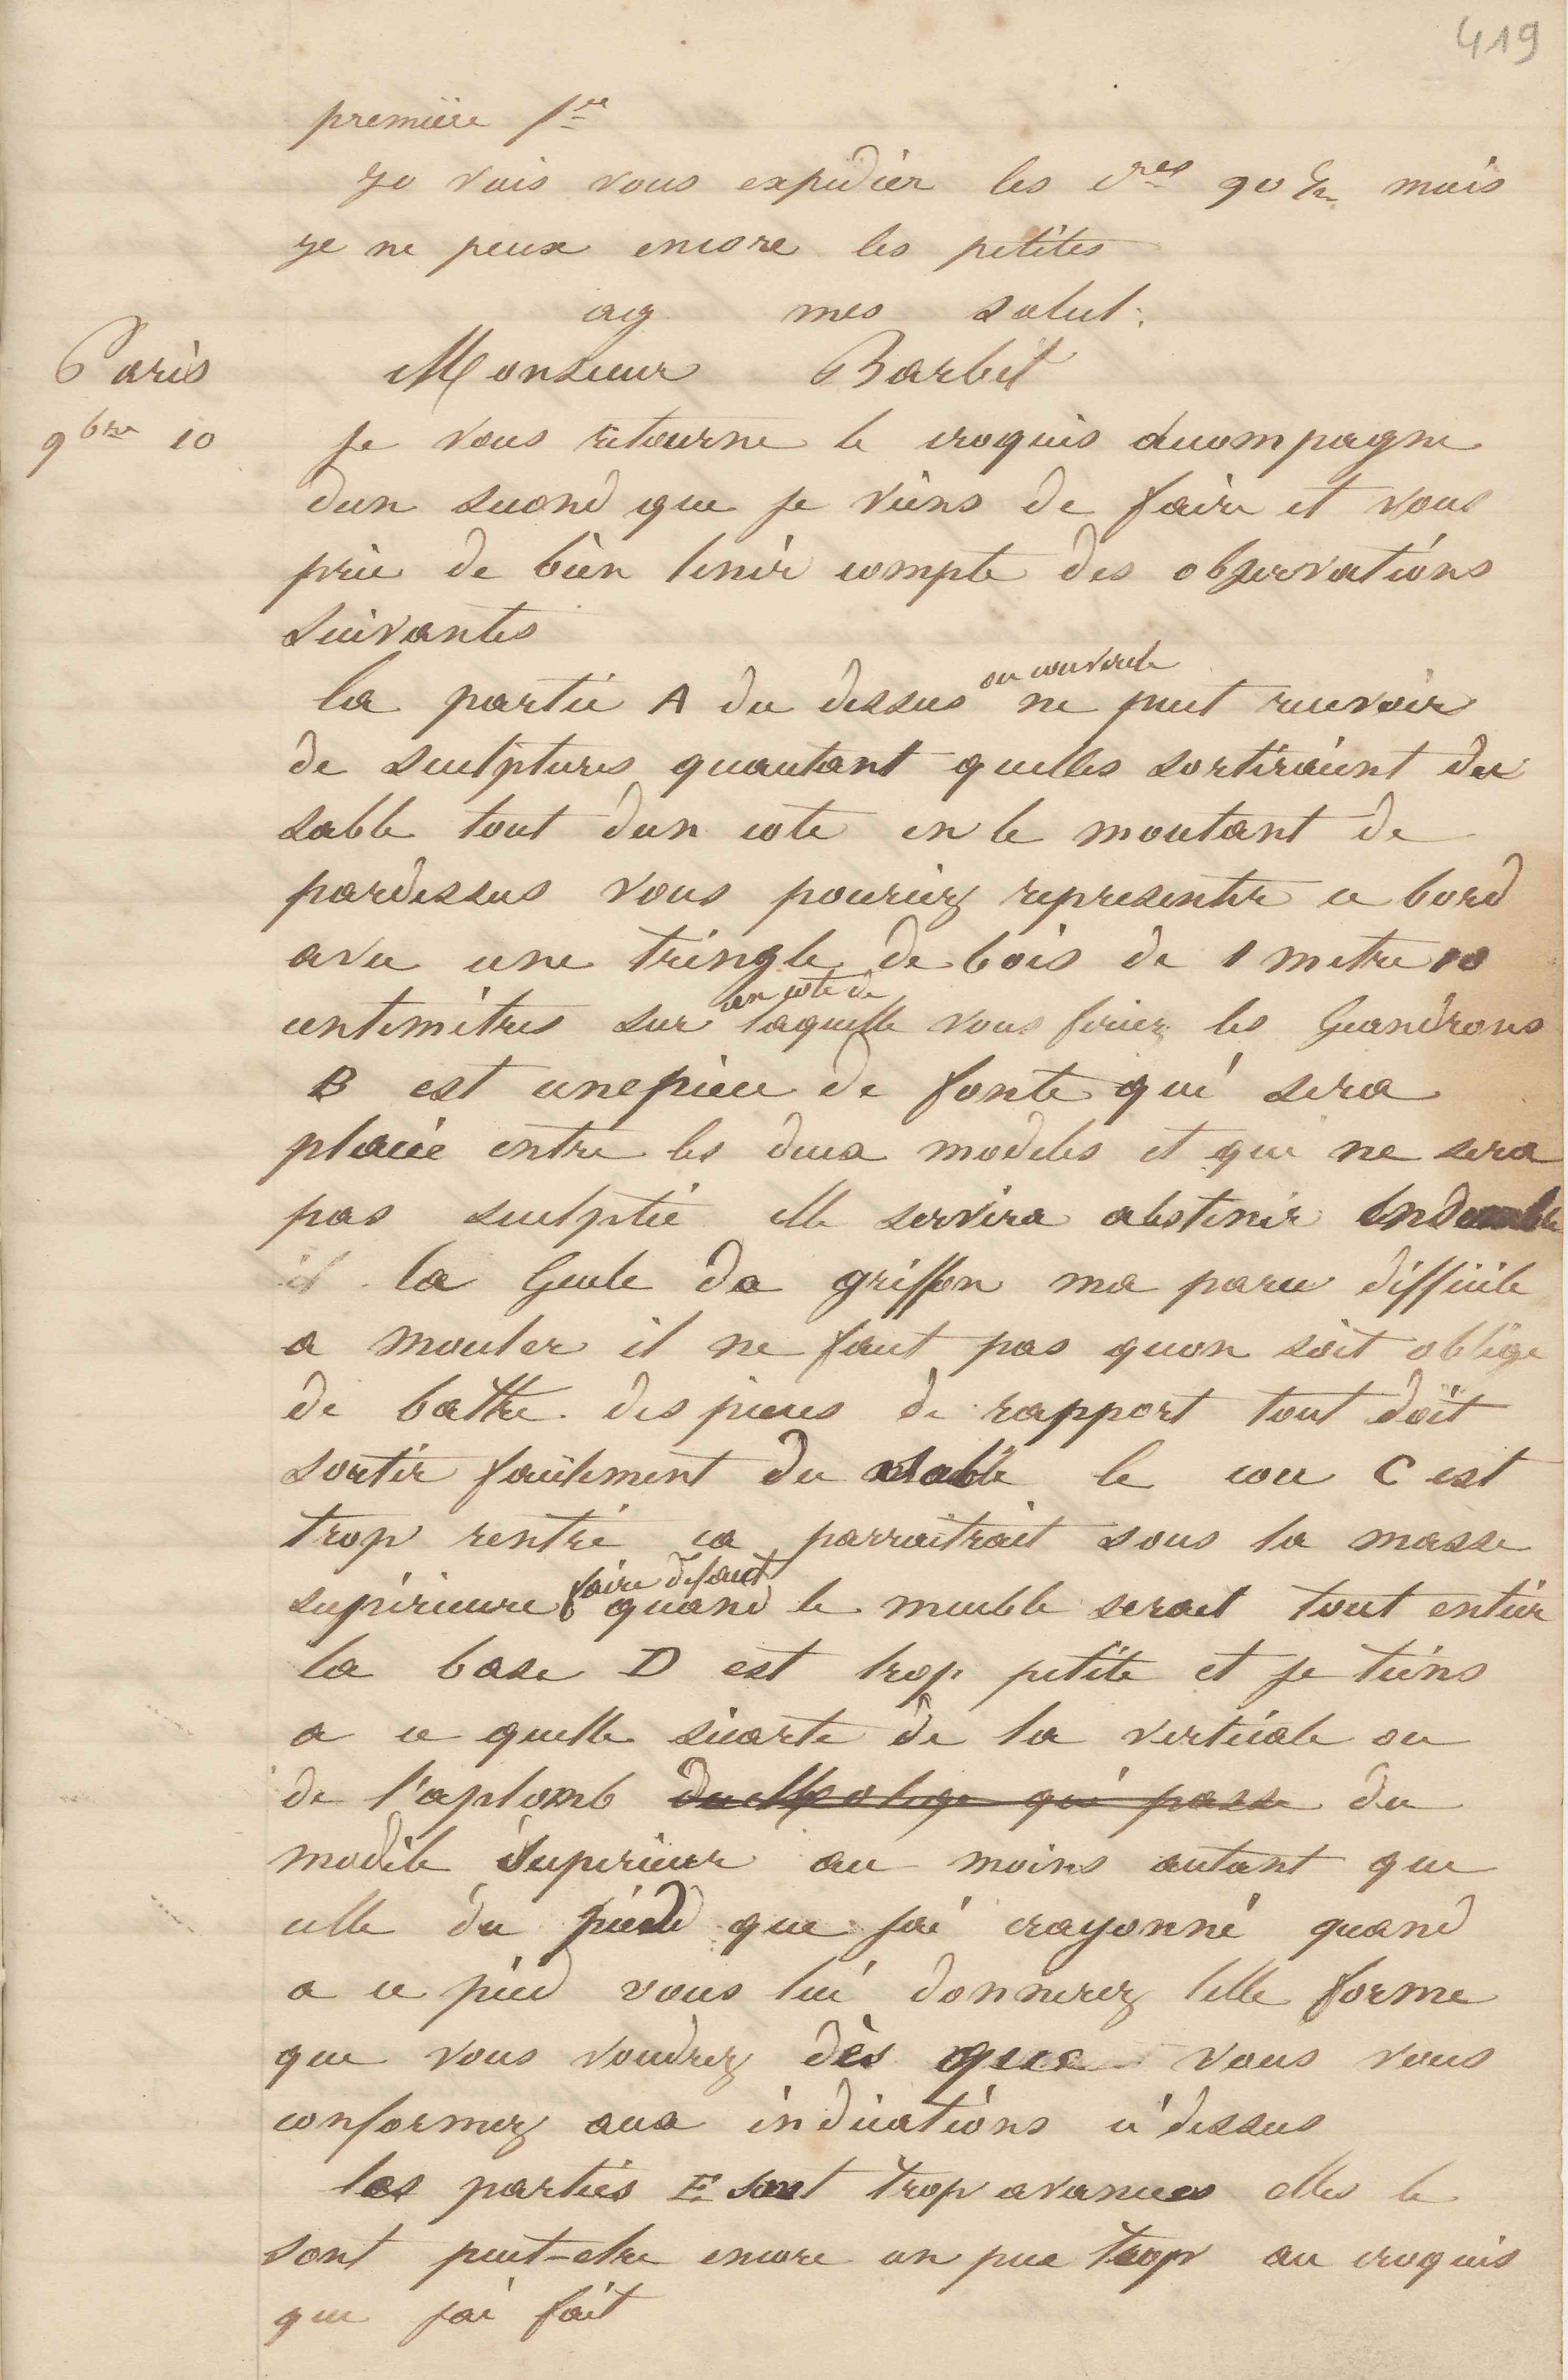 419
première fre
je vais vous expedier les mais
je ne peux encore les petites
ag mes salut.
Paris Monsieur Barbet
9bre 10 je vous retourne le croquis acompagne
dun second que je viens de faire et vous
prie de bien tenir compte des observations
suivantes
la partie A du dessus ou couvercle ne peut recevoir
de sculptures quautant quelles sortiraient du
sable tout dun cote en le moutant de
pardessus vous pouriez representer ce bord
avec une tringle de bois de 1 metre 10
centimètres sur un cote de laquelle vous feriez les Guandrons
B est une piece de fonte qui sera
placée entre les deux modeles et qui ne sera
pas sculptée elle servira abstenir lensemble
la Geule du griffon ma paru difficile
a mouler il ne faut pas quon soit oblige
de battre des pieces de rapport tout doit
sortir facilement du sable le cou C est
trop rentré ca parraitrait sous la masse
supérieure faire defaut quand le meuble serait tout entier
la base D est trop petite et je tiens
a ce quelle sécarte de la verticale ou
de l'aplomb qui passe du
modèle superieur au moins autant que
celle du pied que jai crayonné quand
a ce pied vous lui donnerez telle forme
que vous voudrez dès que vous vous
conformez aux indications ci dessus
les parties E sont trop avancées elles le
sont peut-etre encore un peu trop au croquis
que jai fait